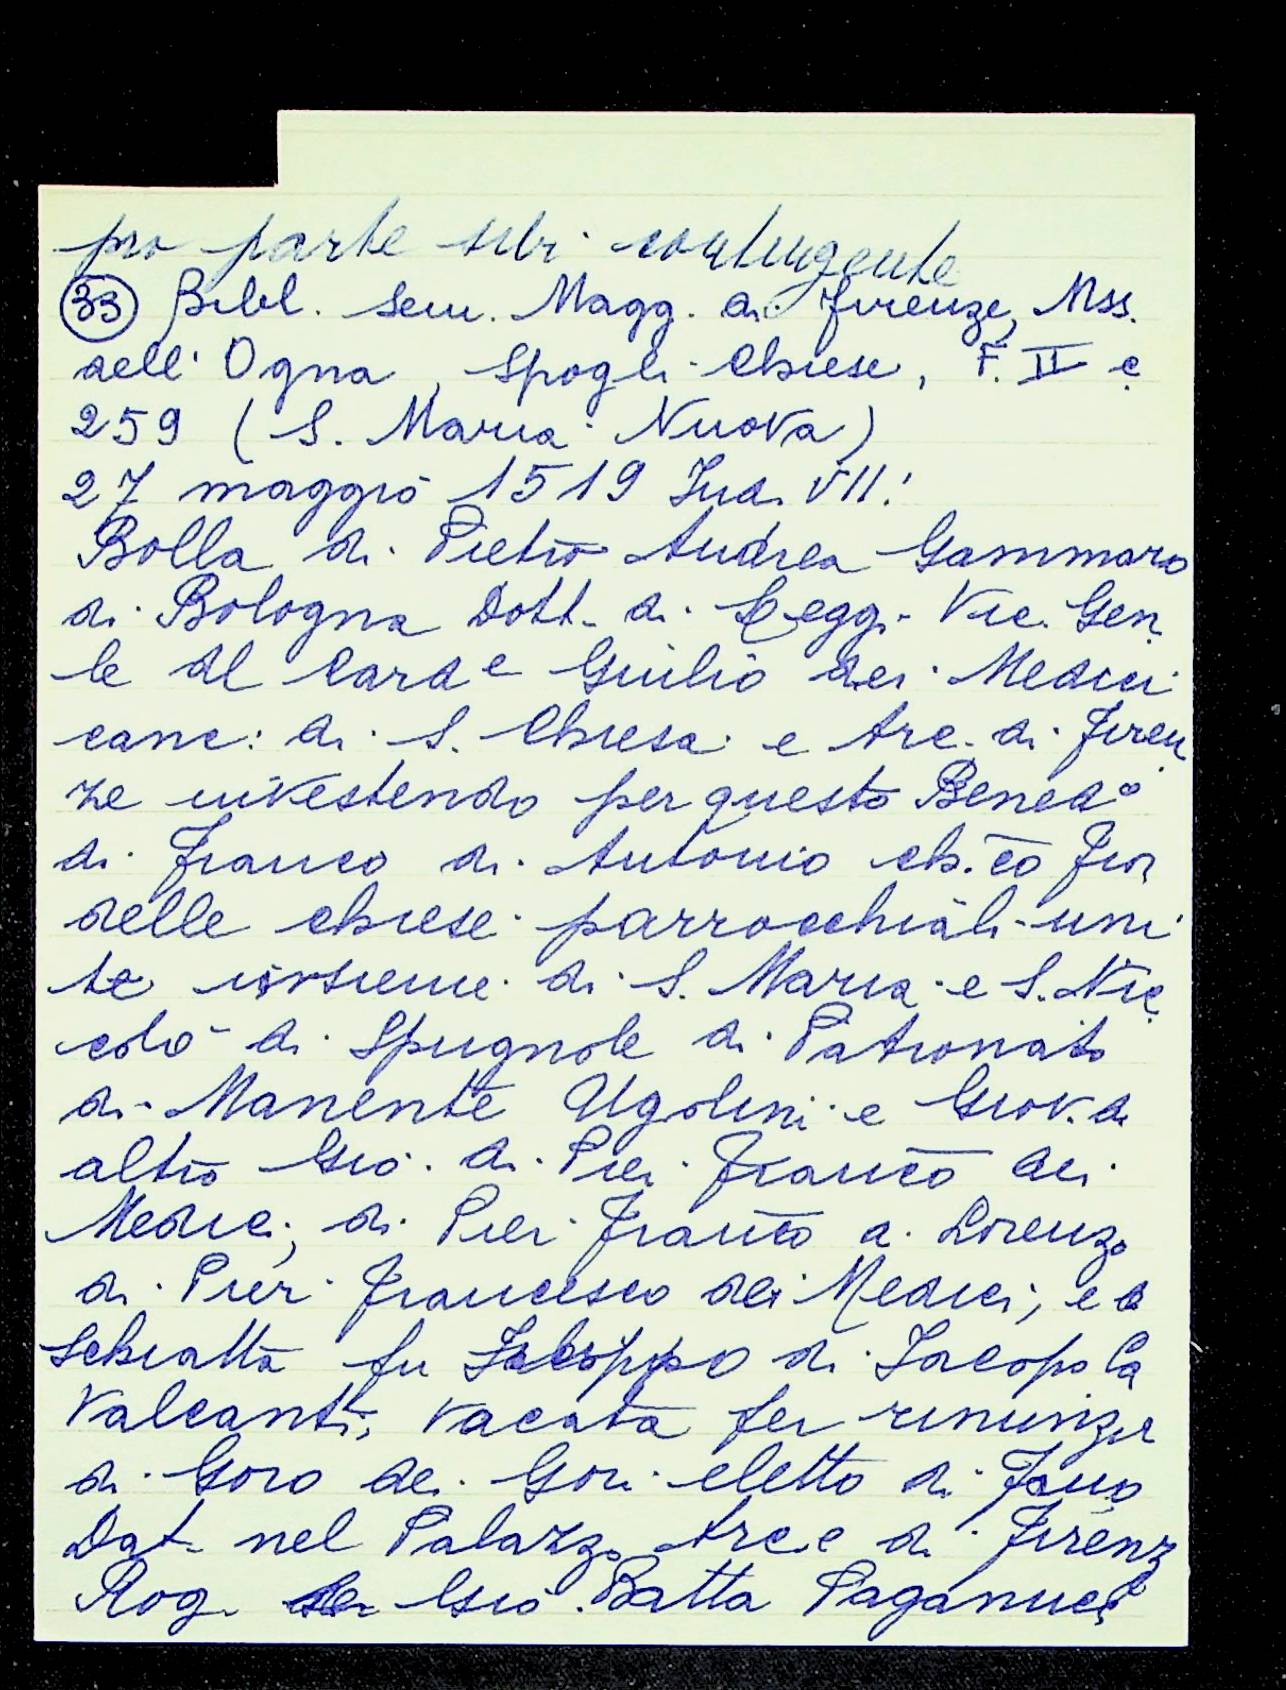 pro parte sibi contingente
(33) Bibl. Sem. Magg. di Firenze, Mss.
dell'Ogna, Spogli Chiese, F. II c
259 (S. Maria Nuova)
27 maggio 1519 Ind. VII:
Bolla di Pietro Andrea Gammaro
di Bologna Dott. di Leggi Vic. Gen
le del Card e Giulio dei Medici
canc: di S. Chiesa e Arc. di Firen
ze investendo per questo Bened°
di Franco di Antonio ch.co Fior
delle chiese parrocchiali uni
te insieme di S. Maria e S. Nic
colò di Spugnole di Patronato
di Manente Ugolini e Giov. di
altro Gio. di Pier Franco dei
Medici, di Pier Franco di Lorenzo
di Pier Francesco dei Medici, e d
Schiatta fu Jacoppo di Jacopo Ca
valcanti, vacata per rinunzia
di Goro dei Gori eletto di Fano
Dat. nel Palazzo Arc.e di Firenz
Rog. Ser Gio. Batta Paganucci